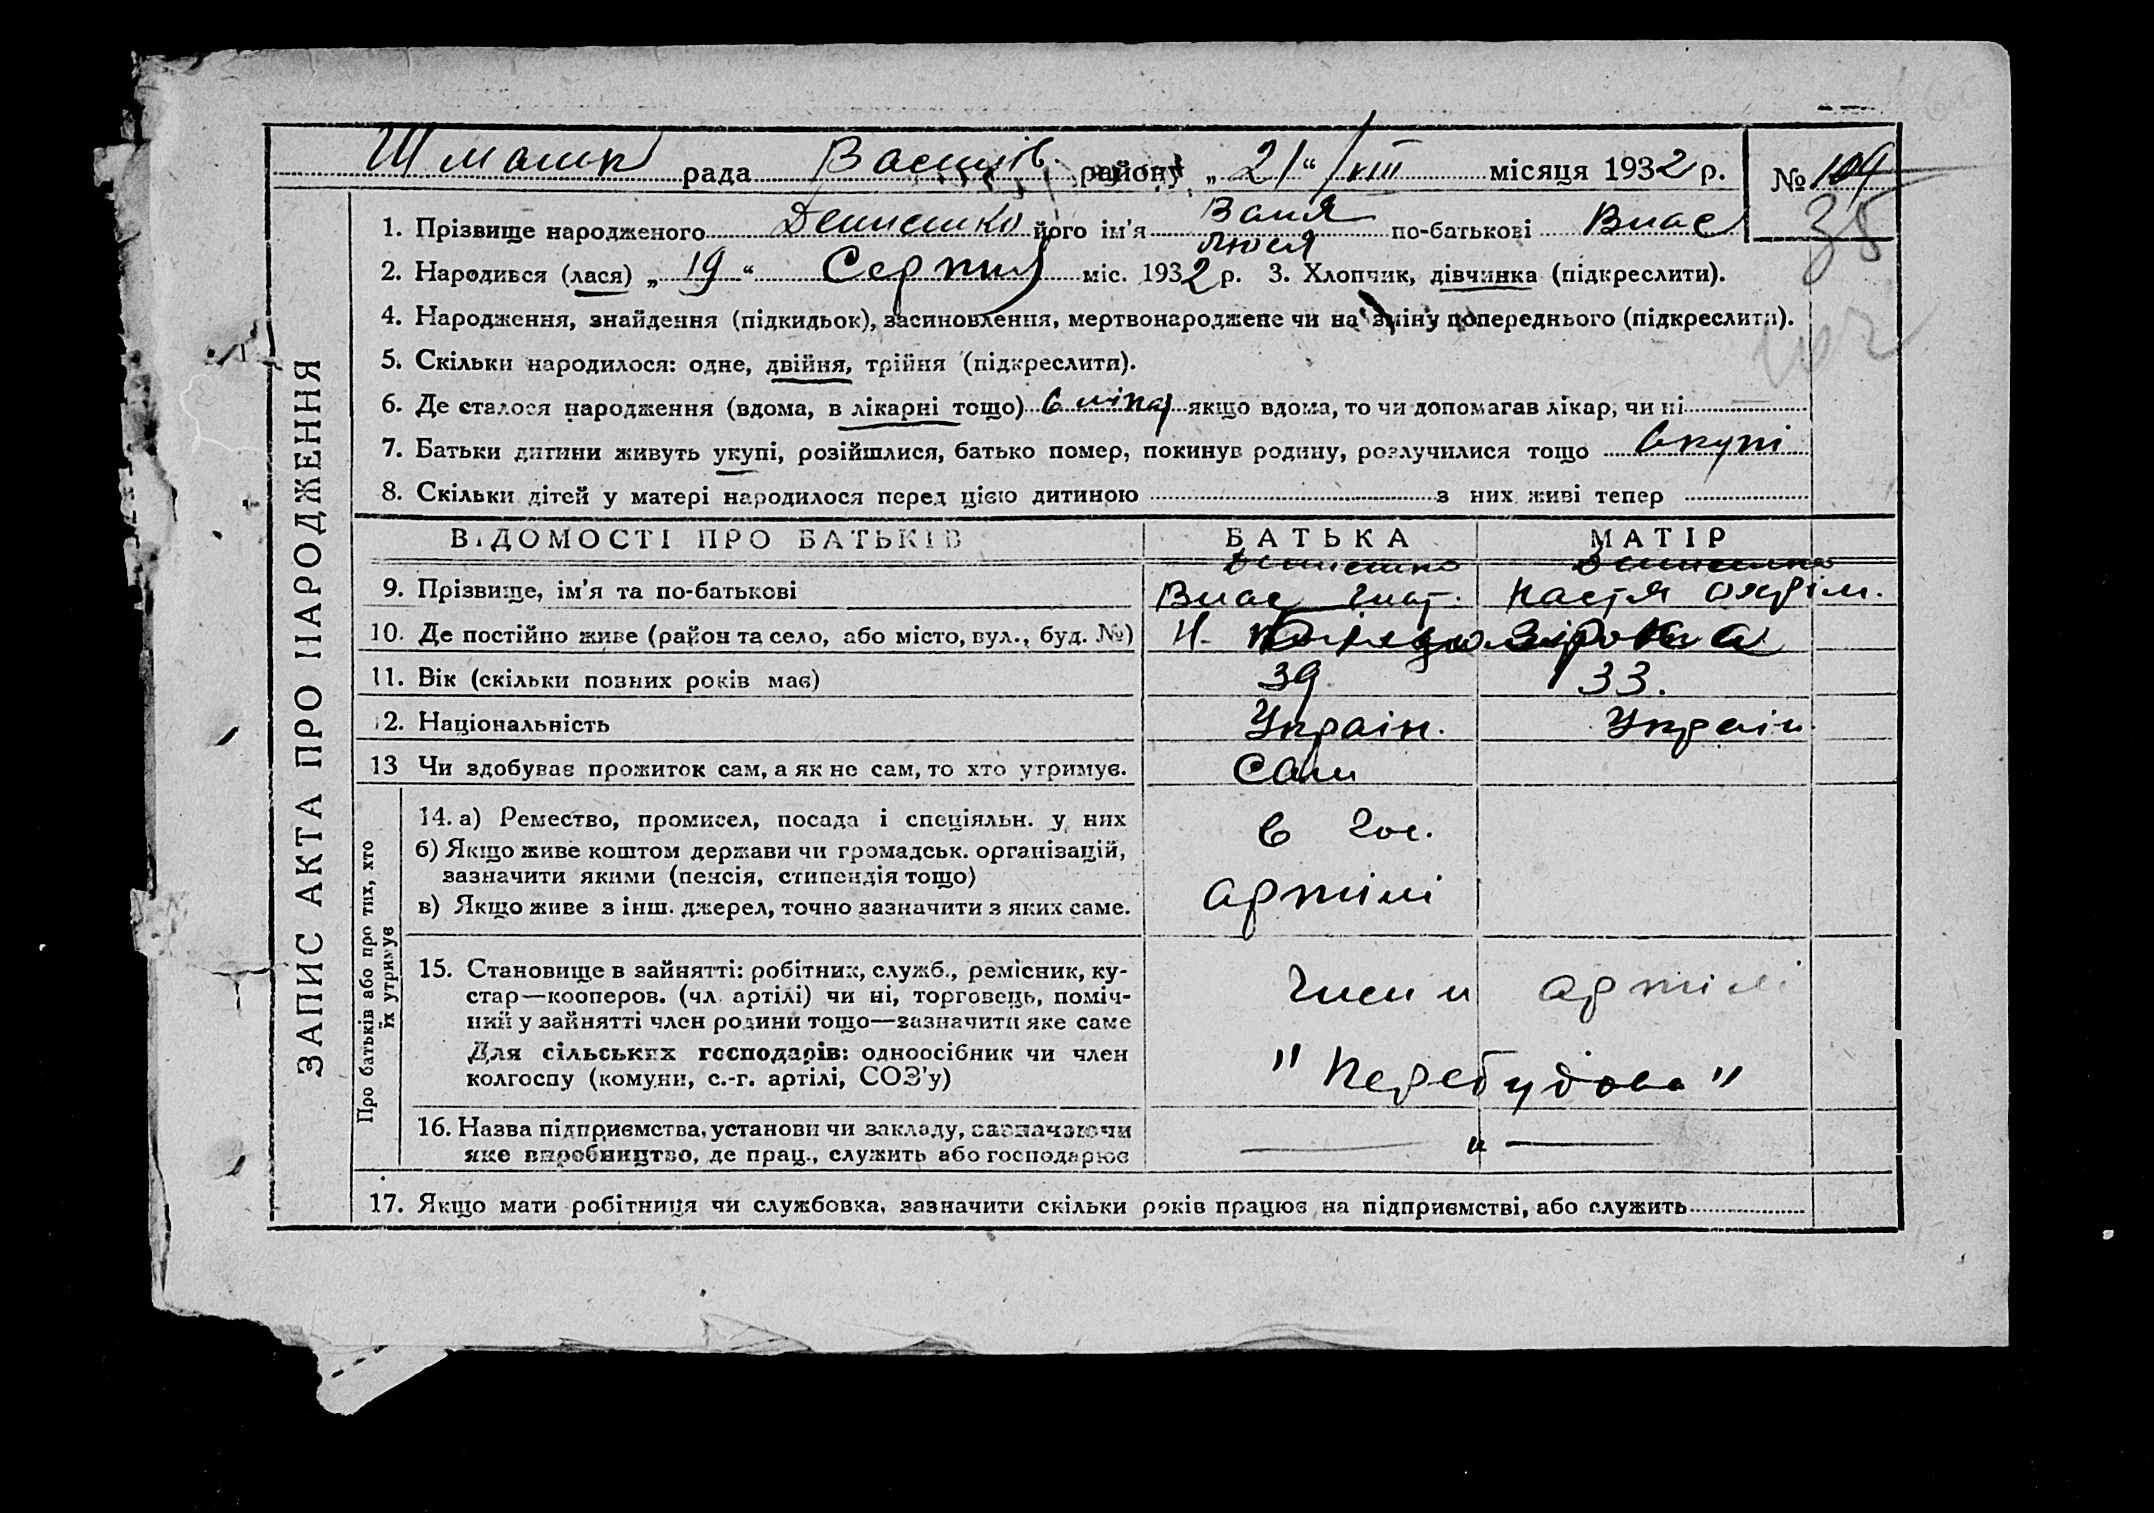 Шмальк рада Васильків. району „ 21 “ VIII місяця 1932 р. № 104
38
1. Прізвище народженого Денисенко його ім'я Ваня по-батькові Влас
Люся
2. Народився (лася) „ 19 “ Серпня міс. 1932 р. 3. Хлопчик, дівчинка (підкреслити).
4. Народження, знайдення (підкидьок), засиновлення, мертвонароджене чи на зміну попереднього (підкреслити).
102
5. Скільки народилося: одне, двійня, трійня (підкреслити).
6. Де сталося народження (вдома, в лікарні тощо) в лікар якщо вдома, то чи допомагав лікар, чи ні
7. Батьки дитини живуть укупі, розійшлися, батько помер, покинув родину, розлучилися тощо вкупі
8. Скільки дітей у матері народилося перед цією дитиною з них живі тепер
ЗАПИС АКТА ПРО НАРОДЖЕННЯ
ВІДОМОСТІ ПРО БАТЬКІВ БАТЬКА МАТІР
Денисенко Денисенко
9. Прізвище, ім'я та по-батькові Влас Гнат. Настя
10. Де постійно живе (район та село, або місто, вул., буд. №)
11. Вік (скільки повних років має) 39 33.
12. Національність Україн. Україн.
13 Чи здобуває прожиток сам, а як не сам, то хто утримує. Сам
Про батьків або про тих, хто їх утримує
14. а) Ремество, промисел, посада і спеціяльн. у них в гос.
б) Якщо живе коштом держави чи громадськ. організацій,
зазначити якими (пенсія, стипендія тощо) артілі
в) Якщо живе з інш. джерел, точно зазначити з яких саме.
15. Становище в зайнятті: робітник, служб., ремісник, ку-
стар—кооперов. (чл. артілі) чи ні, торговець, поміч- Член артілі
ний у зайнятті член родини тощо—зазначити яке саме
Для сільських господарів: одноосібник чи член "Перебудова"
колгоспу (комуни, с.-г. артілі, СОЗ'у)
16. Назва підприємства, установи чи закладу, зазначаючи — " —
яке виробництво, де прац., служить або господарює
17. Якщо мати робітниця чи службовка, зазначити скільки років працює на підприємстві, або служить